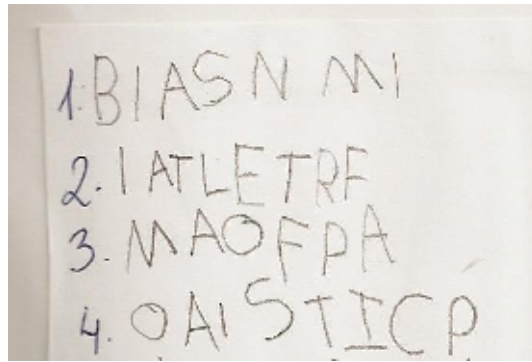 1. BIASN MI
2. IATLETRF
3. MAOFPA
4. OAISTICP